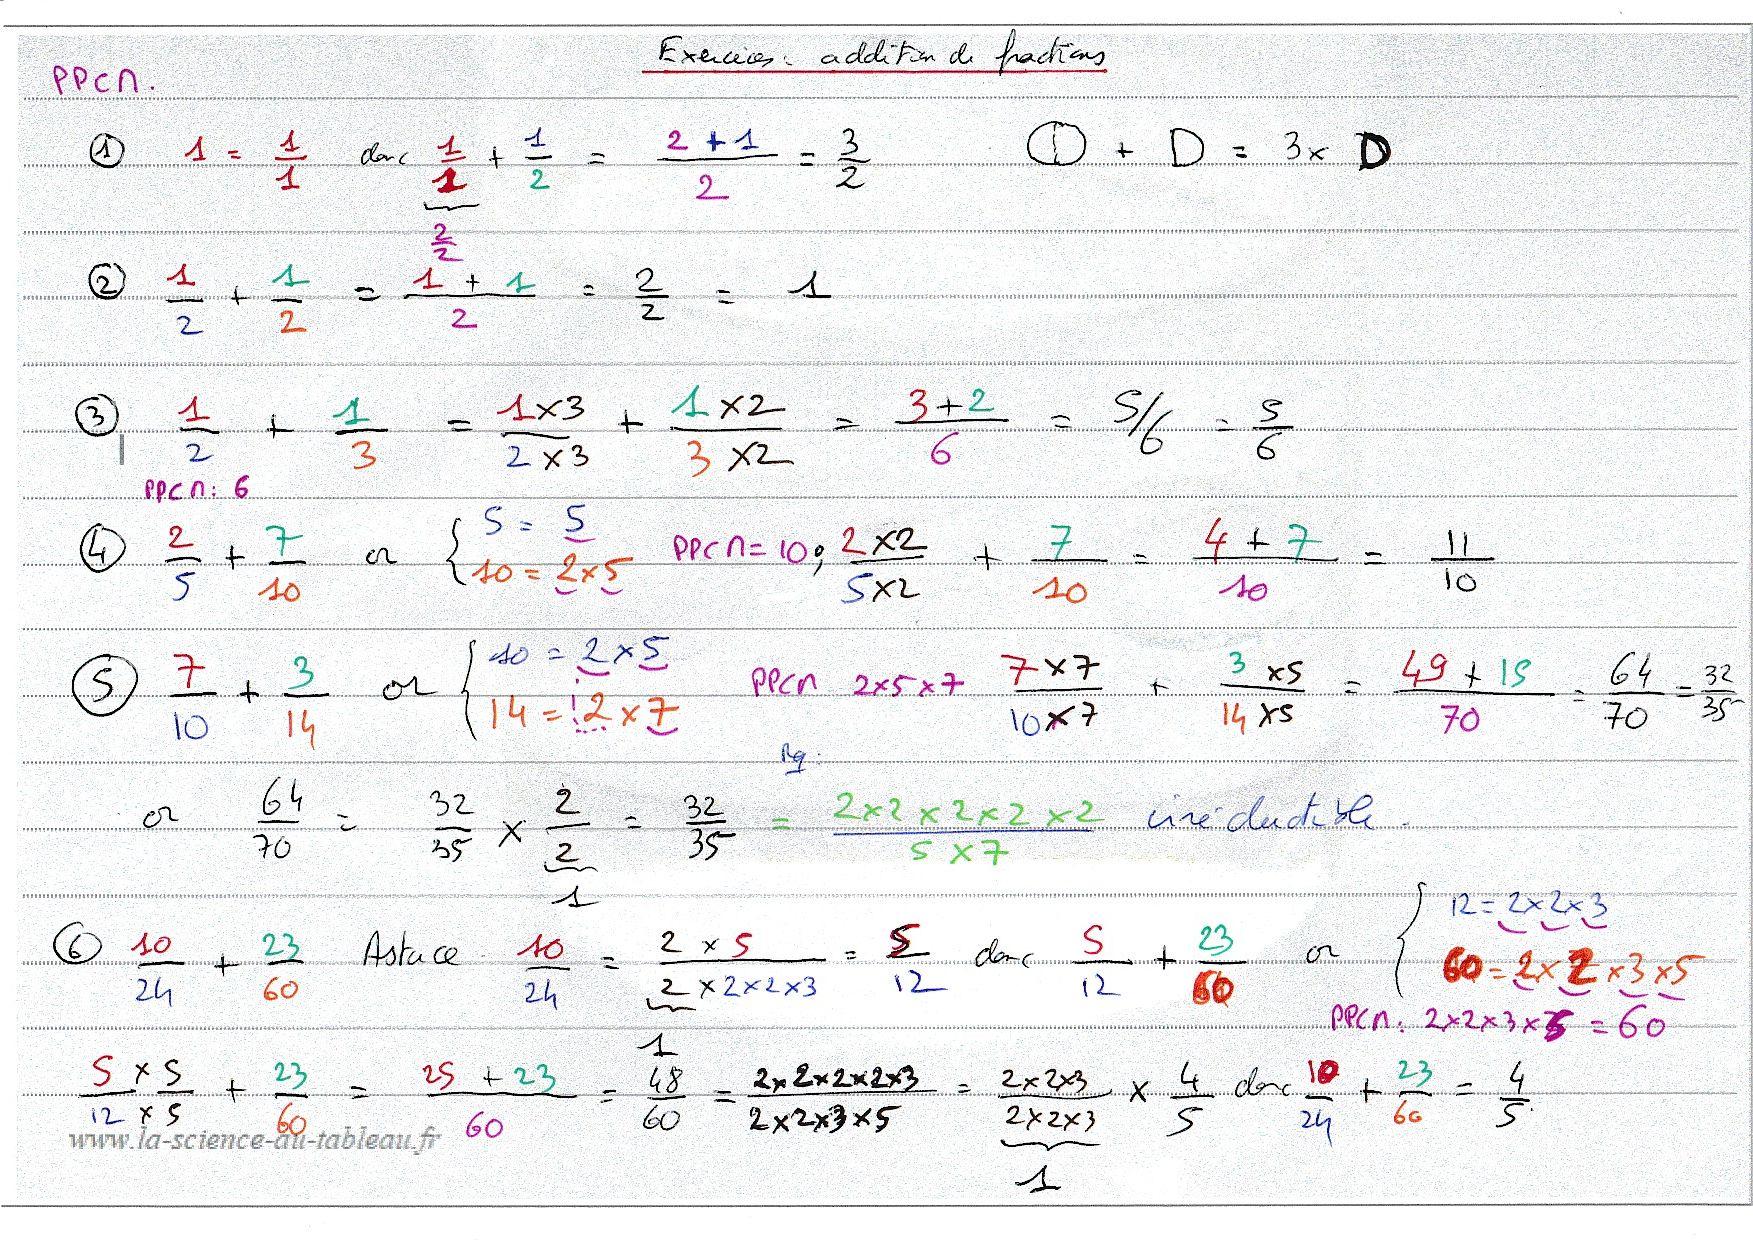 Exercices : addition de fractions
PPCM.
① 1 = 1/1 donc 1/1 + 1/2 = (2+1)/2 = 3/2 ① + D = 3x D
2/2
② 1/2 + 1/2 = (1+1)/2 = 2/2 = 1
③ 1/2 + 1/3 = (1x3)/(2x3) + (1x2)/(3x2) = (3+2)/6 = 5/6 = 5/6
PPCM: 6
④ 2/5 + 7/10 or { 5 = 5 10 = 2x5 PPCM = 10; (2x2)/(5x2) + 7/10 = (4+7)/10 = 11/10
⑤ 7/10 + 3/14 or { 10 = 2x5 14 = 2x7 PPCM 2x5x7 (7x7)/(10x7) + (3x5)/(14x5) = (49+15)/70 = 64/70 = 32/35
Rq:
or 64/70 = 32/35 x 2/2 = 32/35 = (2x2x2x2x2)/(5x7) irréductible.
1
⑥ 10/24 + 23/60 Astuce 10/24 = (2x5)/(2x2x2x3) = 5/12 donc 5/12 + 23/60 or { 12 = 2x2x3 60 = 2x2x3x5
PPCM: 2x2x3x5 = 60
1
(5x5)/(12x5) + 23/60 = (25+23)/60 = 48/60 = (2x2x2x2x3)/(2x2x3x5) = (2x2x3)/(2x2x3) x 4/5 donc 10/24 + 23/60 = 4/5
www.la-science-au-tableau.fr
1